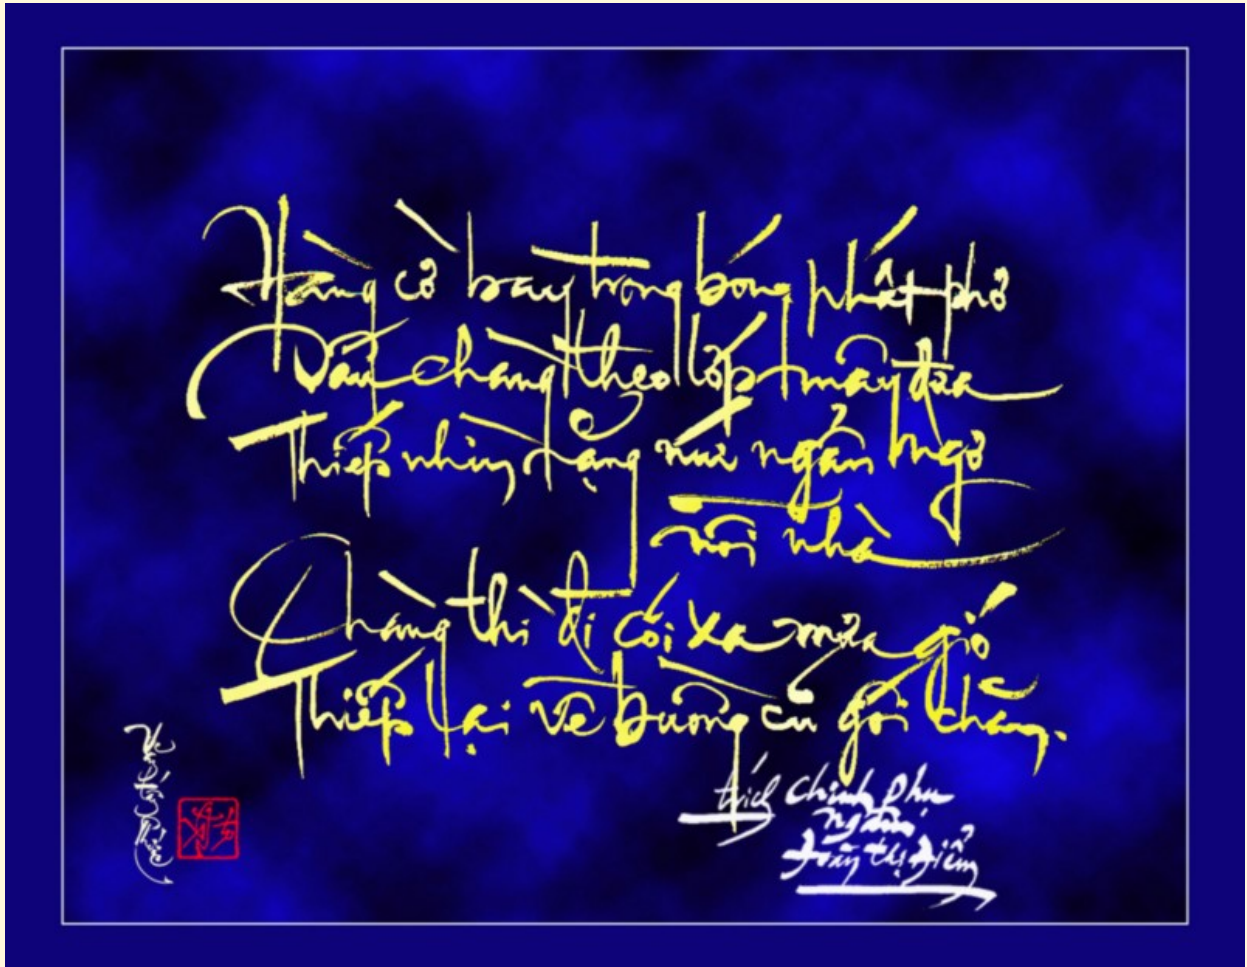 Hàng cờ bay trong bóng phất phơ
Dấu chàng theo lớp mây đưa
Thiếp nhìn rặng núi ngẩn ngơ
nỗi nhà
Chàng thì đi cõi xa mưa gió
Thiếp lại về buồng cũ gối chăn.
trích Chinh Phụ
ngâm
Đoàn Thị Điểm